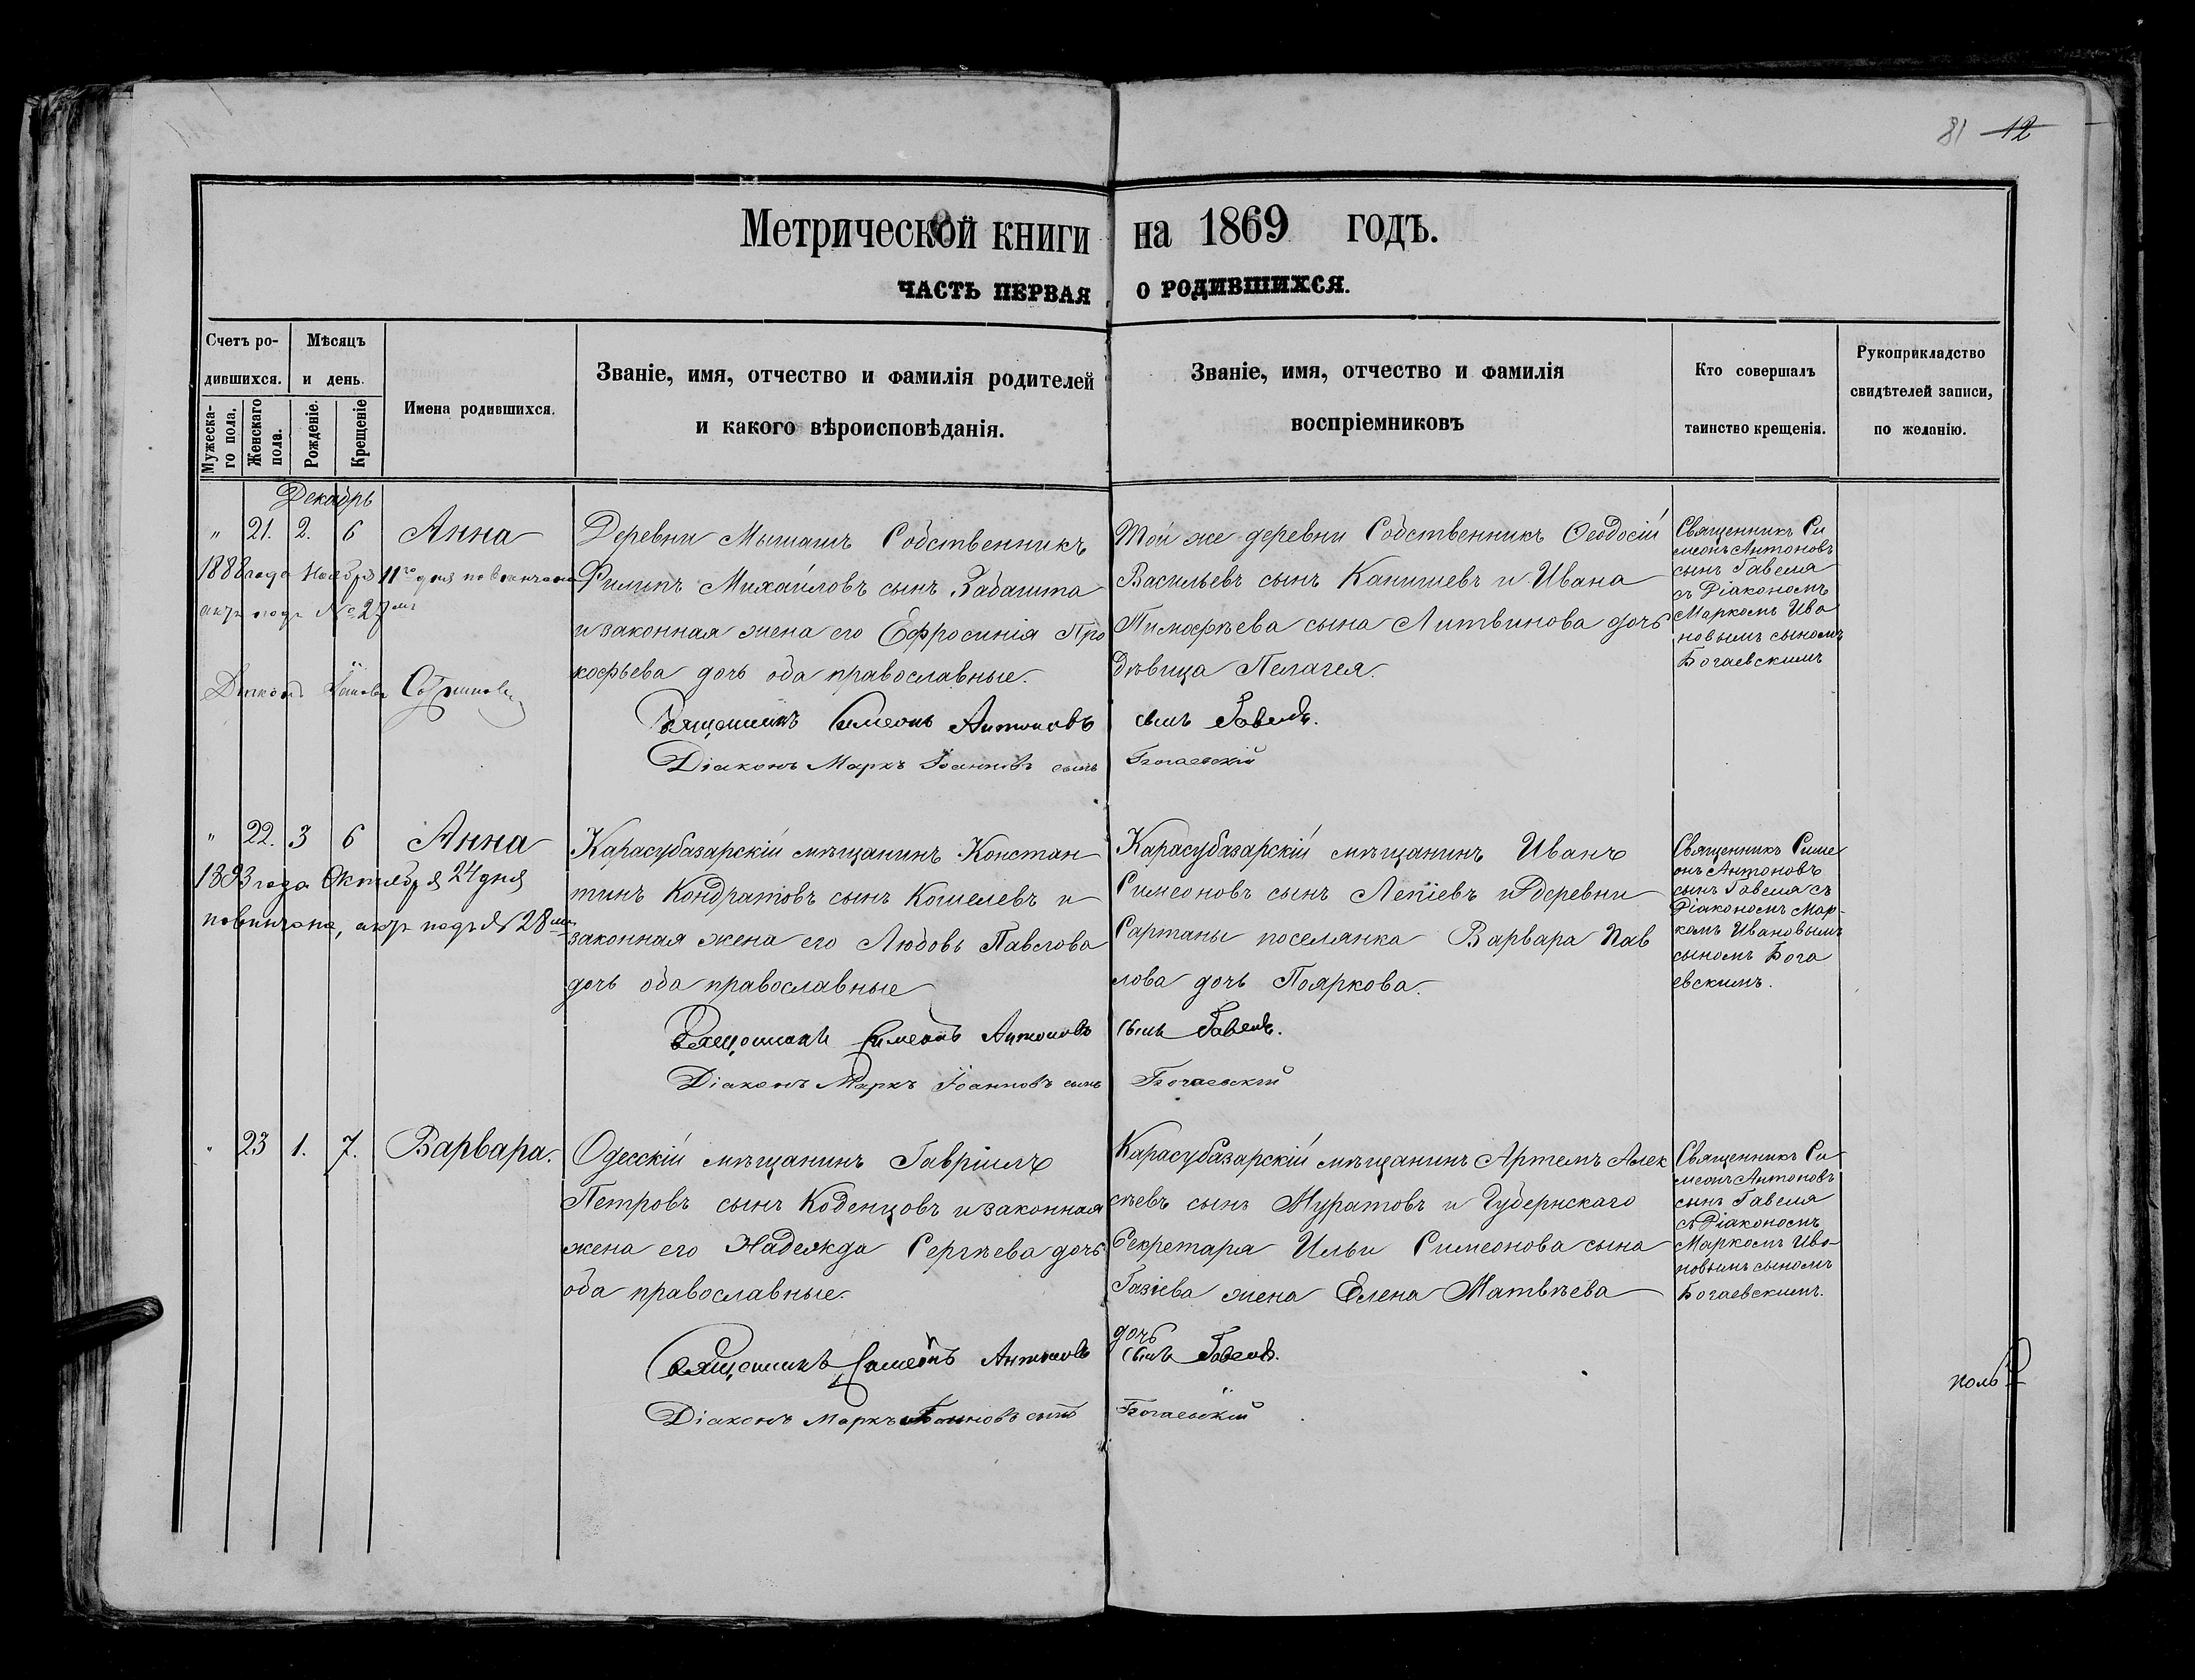 81 12
Метрической книги на 1869 годъ.
ЧАСТЬ ПЕРВАЯ О РОДИВШИХСЯ.
Счетъ ро-
дившихся.
Мужеска-
го пола.
Женскаго
пола.
Мѣсяцъ
и день.
Рожденіе.
Крещеніе
Имена родившихся.
Званіе, имя, отчество и фамилія родителей
и какого вѣроисповѣданія.
Званіе, имя, отчество и фамилія
воспріемниковъ
Кто совершалъ
таинство крещенія.
Рукоприкладство
свидѣтелей записи,
по желанію.
Декабрь
" 21. 2. 6 Анна
1888 года Ноября 11го дня повѣнчана
актъ подъ № 27мъ
Діаконъ
Деревни Собственникъ
Филипъ Михайловъ сынъ Забашта
и законная жена его Ефросинія Про
кофьева дочь оба православные.
Той же деревни Собственникъ Ѳеодосій
Васильевъ сынъ Капишевъ и Ивана
Тимофѣева сына Литвинова дочь
дѣвица Пелагея.
Священникъ Си
меонъ Антоновъ
сынъ Гавеля
съ Діакономъ
Маркомъ Ива
новымъ сыномъ
Богаевскимъ
Священникъ Симеонъ Антоновъ сынъ Гавель.
Діаконъ Маркъ Іоанновъ сынъ Богаевскій
" 22. 3 6 Анна
1893 года Октября 24 дня
повѣнчана, актъ подъ № 28мъ
Карасубазарскій мѣщанинъ Констан
тинъ Кондратовъ сынъ Кошелевъ и
законная жена его Любовь Павлова
дочь оба православные
Карасубазарскій мѣщанинъ Иванъ
Симеоновъ сынъ Лепіевъ и деревни
Сартаны поселянка Варвара Пав
лова дочь Пояркова.
Священникъ Симе
онъ Антоновъ
сынъ Гавеля съ
Діакономъ Мар-
комъ Ивановымъ
сыномъ Бога
евскимъ.
Священникъ Симеонъ Антоновъ сынъ Гавель.
Діаконъ Маркъ Іоанновъ сынъ Богаевскій
" 23 1. 7. Варвара.
Одесскій мѣщанинъ Гавріилъ
Петровъ сынъ Коденцовъ и законная
жена его Надежда Сергѣева дочь
оба православные
Карасубазарскій мѣщанинъ Артемъ Алек
сѣевъ сынъ Муратовъ и Губернскаго
Секретаря Ильи Симеонова сына
Газіева жена Елена Матвѣева
дочь
Священникъ Си
меонъ Антоновъ
сынъ Гавеля
съ Діакономъ
Маркомъ Ива-
новымъ сыномъ
Богаевскимъ.
Священникъ Симеонъ Антоновъ сынъ Гавель.
Діаконъ Маркъ Іоанновъ сынъ Богаевскій